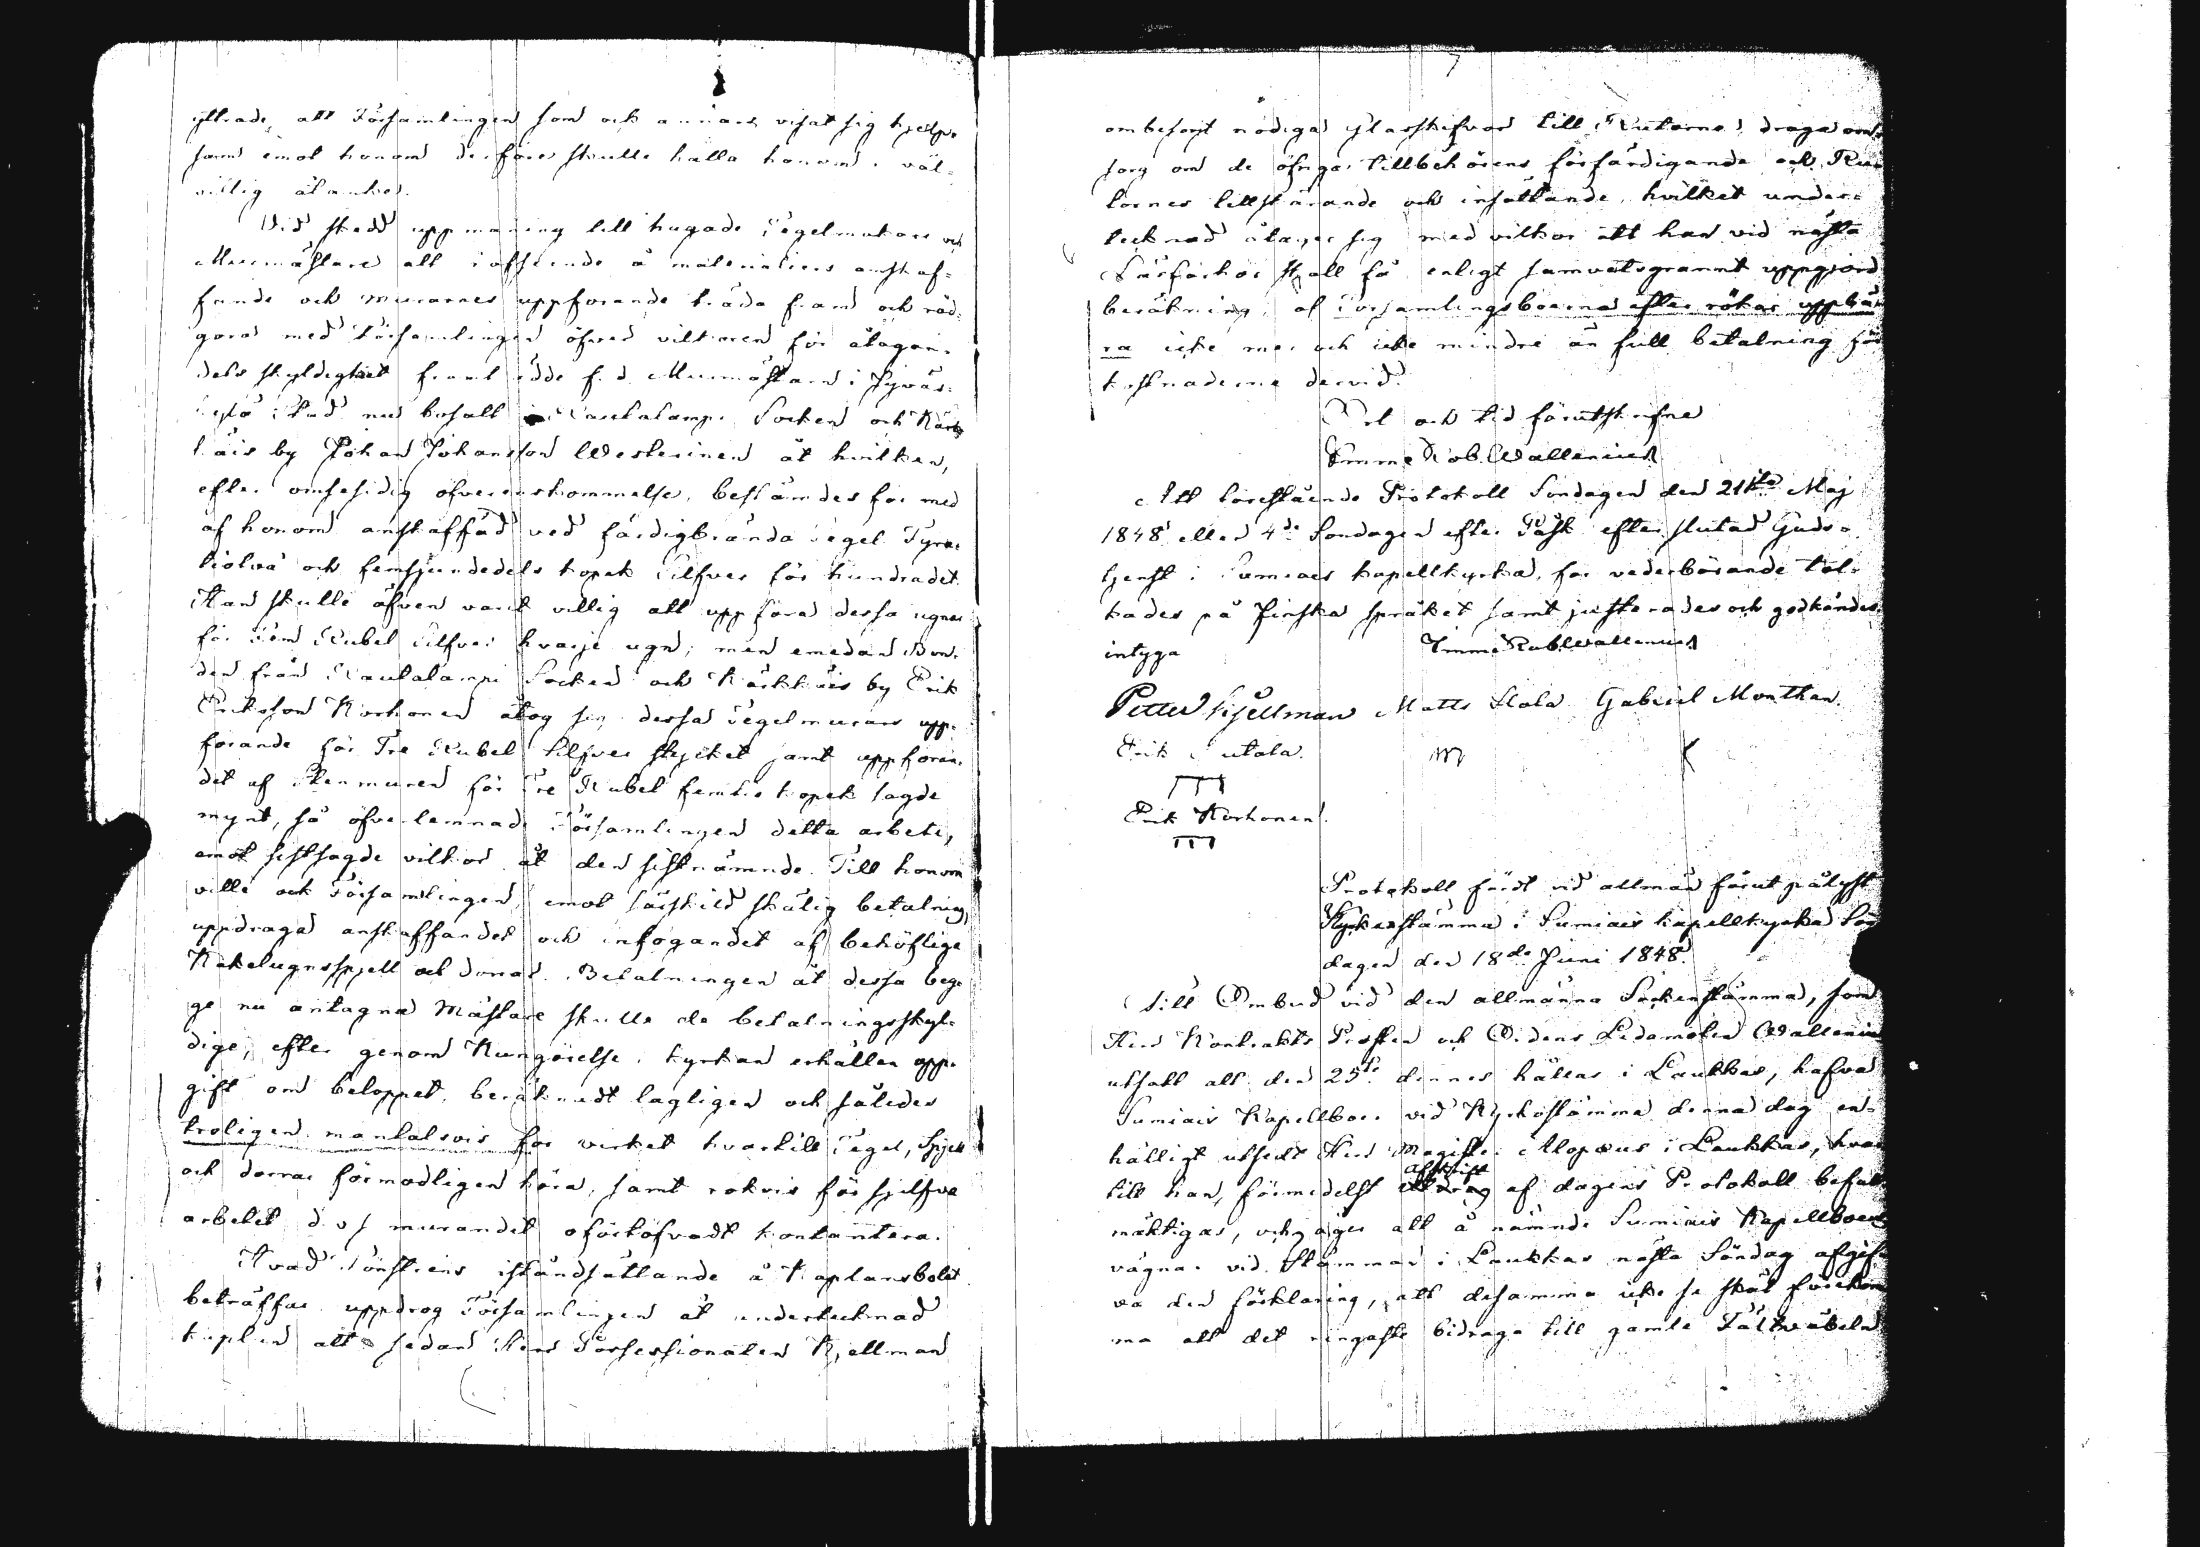 yttrade, att Församlingen som ock annars visat sig hjelp-
sam emot honom derföre skulle hålla honom i väl-
villig åtanke.
Vid skedd uppmaning till hugade Tegelmakare och
Murmästare att i afseende å materialiers anskaf-
fande och murarnes uppförande träda fram och råd-
göra med Församlingen öfver vilkoren för åtagan-
dets skyldighet framträdde f. d. Murmästaren i Jyväs-
kylä Stad med bosatt i Rautalampi Socken och Kärk-
käis by Johan Johansson Westerinen åt hvilken,
efter omsesidig öfverenskommelse, bestämdes för med
af honom anskaffad ved färdigbrända Tegel Fyra-
tiotvå och femsjundedels kopek Silfver för hundradet.
Han skulle äfven varit villig att uppföra dessa ugnar
för Fem Rubel Silfver hvarje ugn; men emedan Bon-
den från Rautalampi Socken och Kärkkäis by Erik
Eriksson Korhonen åtog sig dessa Tegelmurars upp-
förande för Tre Rubel Silfver stycket samt uppföran-
det af Stenmuren för Tre Rubel femtio kopek sagde
mynt, så öfverlemnade Församlingen detta arbete,
emot sistsagde vilkor åt den sistnämnde. Till honom
ville ock Församlingen, emot särskild skälig betalning,
uppdraga anskaffandet och infogandet af behöflige
Kakelugnsspjell och dörrar. Betalningen åt dessa beg-
ge nu antagna Mästare skulle de betalningsskyl-
dige, efter genom Kungörelse i kyrkan erhållen upp-
gift om beloppet, beräknadt lagligen och således
troligen mantalsvis för virket hvartill Tegel, Spjell
och dörrar förmodligen höra, samt rökvis för sjelfva
arbetet d. v. s. murandet oförtöfvadt kontantera.
Hvad Fönstrens iståndsättande å Kaplansbolet
beträffar uppdrog Församlingen åt undertecknad
kaplan att sedan Herr Possessionaten Kjellman
ombesörjt nödiga glasskifvor till Rutorne, draga om-
sorg om de öfriga tillbehörens förfärdigande och Ru-
tornes tillskärande och insättande, hvilket under-
tecknad åtager sig med vilkor att han vid nästa
Läsförhör skall få enligt samvetsgrannt uppgjord
beräkning, af Församlingsboerna efter rökar uppbä-
ra icke mer och icke mindre än full betalning för
kostnaderne dervid.
Ort och tid förutskrifne
Imma. Rob. Wallenius
Att förestående Protokoll Söndagen den 21sta Maj
1848 eller 4de Söndagen efter Påsk efter slutad Guds-
tjenst i Sumiais kapellkyrka, för vederbörande tol-
kades på Finska språket samt justerades och godkändes,
intyga
Imma. Rob. Wallenius
Petter Kjellman Matts Slala Gabriel Monthan.
Erik Sutala.
Erik Korhonen.
Protokoll fördt vid allmän förut pålyst
Kyrkostämma i Sumiais kapellkyrka Sön-
dagen den 18de Juni 1848.
Till Ombud vid den allmänna Sockenstämma, som
Herr Kontrakts Prosten och Ordens Ledamoten Wallenius
utsatt att den 25te dennes hållas i Laukkas, hafva
Sumiais Kapellboer vid Kyrkostämma denna dag en-
hälligt utsedt Herr Magister Alopæus i Laukkas, hvar-
till han, förmedelst afskrift utdrag af dagens Protokoll befull-
mäktigas, och äger att å nämnde Sumiais Kapellboers
vägnar vid Stämman i Laukkas nästa Söndag afgif-
va den förklaring, att desamma icke se skäl förekom-
ma att det ringaste bidraga till gamle Fältväbeln